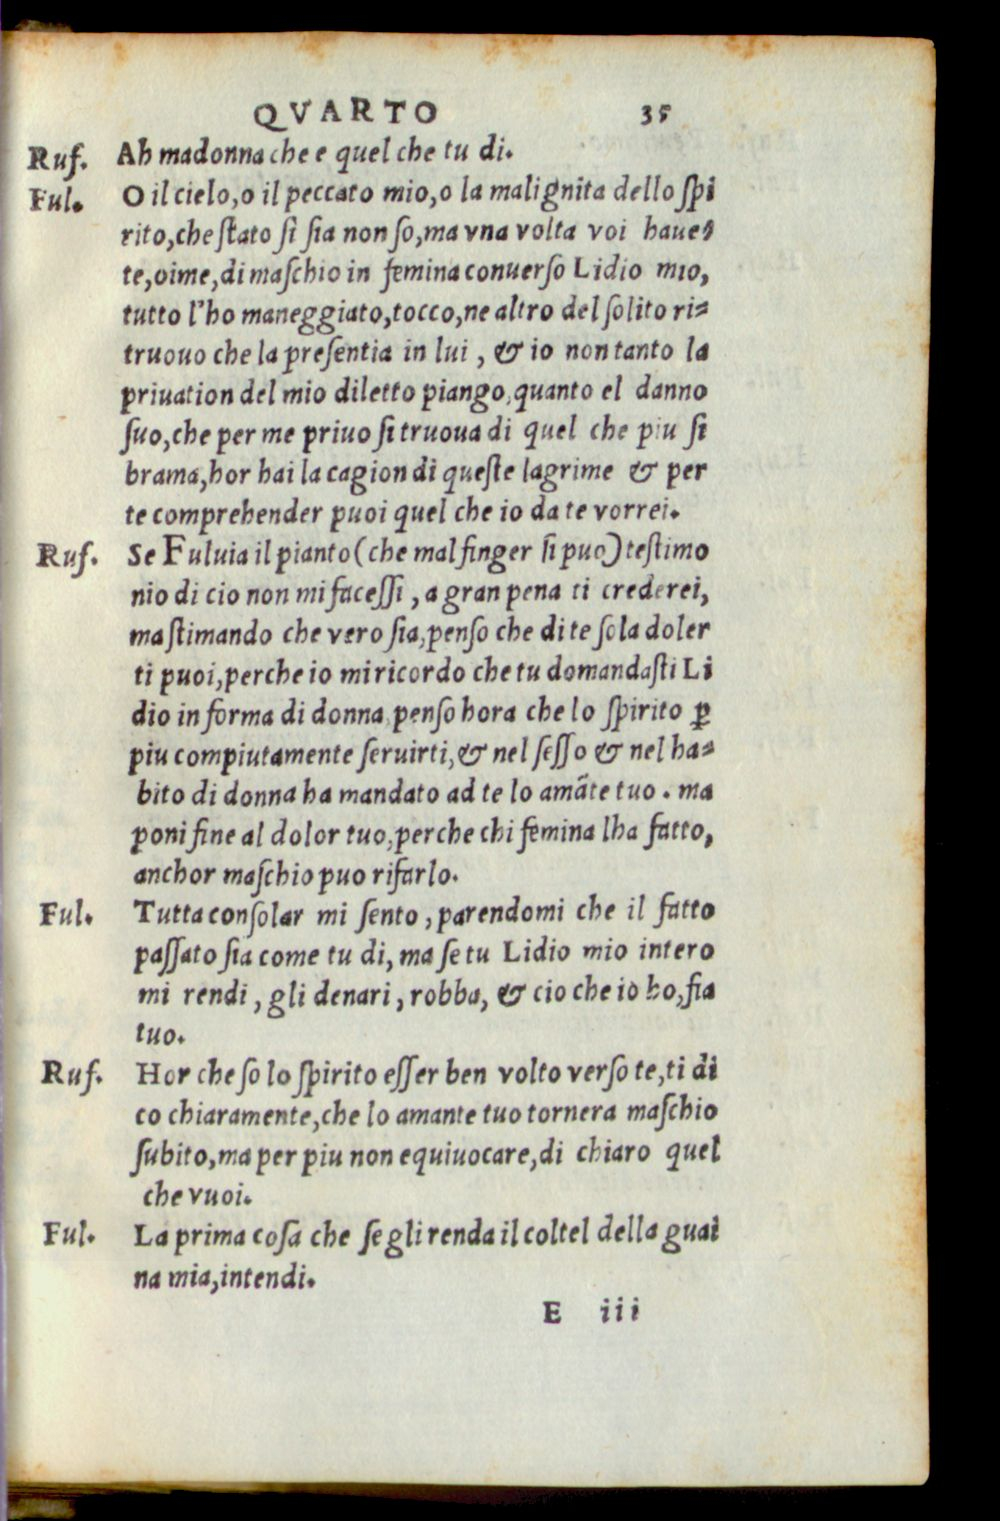 QVARTO 35
Ruf. Ah madonna che e quel che tu di.
Ful. O il cielo, o il peccato mio, o la malignita dello ſpi
rito, che ſtato ſi ſia non ſo, ma vna volta voi haue⸗
te, oime, di maſchio in femina conuerſo Lidio mio,
tutto l'ho maneggiato, tocco, ne altro del ſolito ri⸗
truouo che la preſentia in lui, & io non tanto la
priuation del mio diletto piango, quanto el danno
ſuo, che per me priuo ſi truoua di quel che piu ſi
brama, hor hai la cagion di queſte lagrime & per
te comprehender puoi quel che io da te vorrei.
Ruf. Se Fuluia il pianto (che mal finger ſi puo) teſtimo
nio di cio non mi faceſſi, a gran pena ti crederei,
ma ſtimando che vero ſia, penſo che di te ſola doler
ti puoi, perche io mi ricordo che tu domandaſti Li
dio in forma di donna, penſo hora che lo ſpirito ꝑ
piu compiutamente ſeruirti, & nel ſeſſo & nel ha⸗
bito di donna ha mandato ad te lo amãte tuo. ma
poni fine al dolor tuo, perche chi femina lha fatto,
anchor maſchio puo rifarlo.
Ful. Tutta conſolar mi ſento, parendomi che il fatto
paſſato ſia come tu di, ma ſe tu Lidio mio intero
mi rendi, gli denari, robba, & cio che io ho, ſia
tuo.
Ruf. Hor che ſo lo ſpirito eſſer ben volto verſo te, ti di
co chiaramente, che lo amante tuo tornera maſchio
ſubito, ma per piu non equiuocare, di chiaro quel
che vuoi.
Ful. La prima coſa che ſe gli renda il coltel della guai
na mia, intendi.
E iii